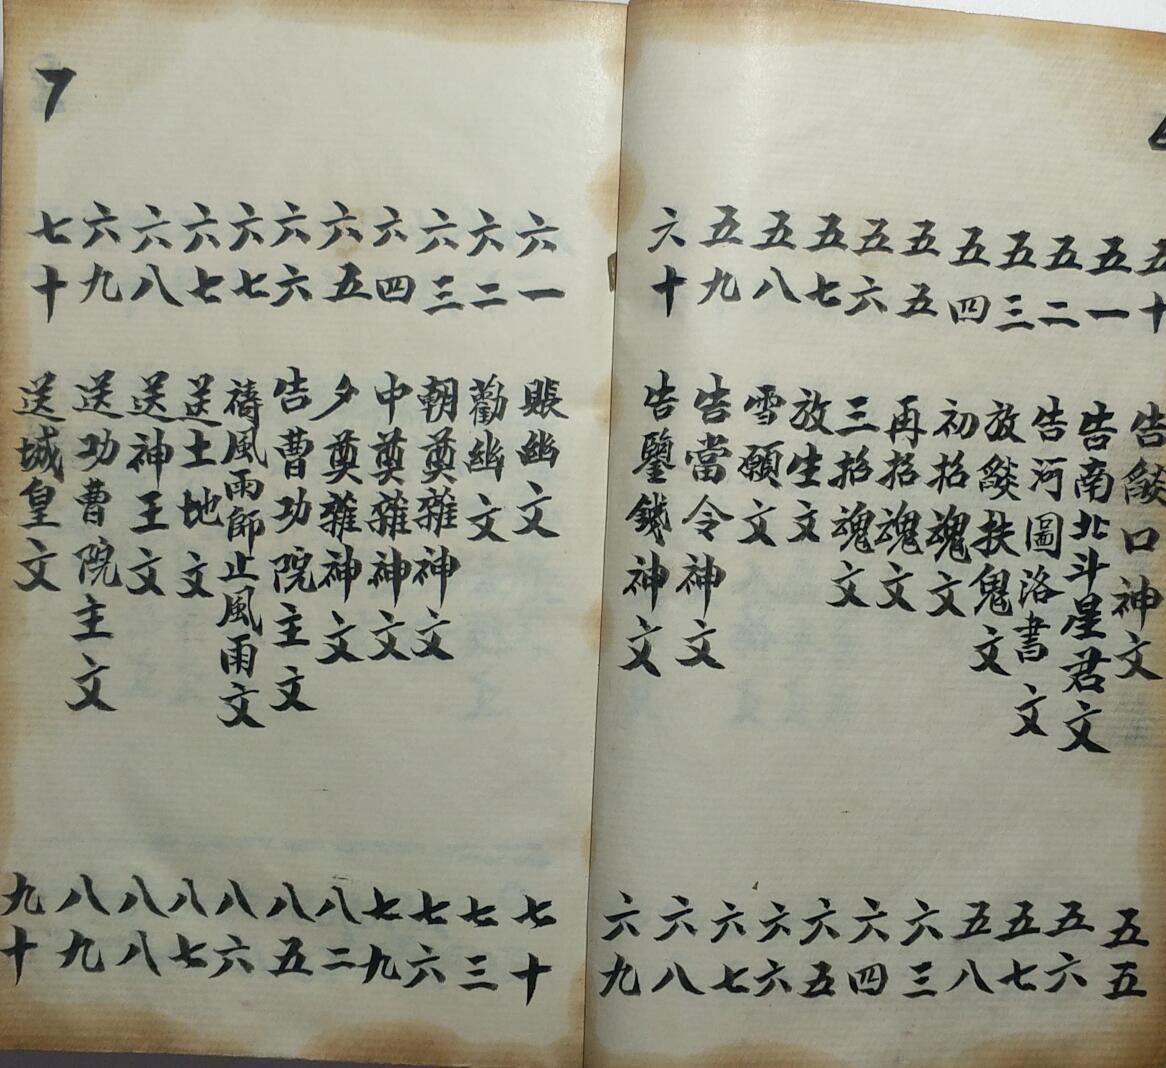 五十 告燄口神文 五五
五一 告南北斗星君文 五六
五二 告河圖洛書文 五七
五三 放燄扶鬼文 五八
五四 初招魂文 六三
五五 再招魂文 六四
五六 三招魂文 六五
五七 放生文 六六
五八 雪願文 六七
五九 告當令神文 六八
六十 告鑒鉞神文 六九
六一 賬幽文 七十
六二 勸幽文 七三
六三 朝奠雜神文 七六
六四 中奠雜神文 七九
六五 夕奠雜神文 八二
六六 告曹功院主文 八五
六七 禱風雨師止風雨文 八六
六七 送土地文 八七
六八 送神王文 八八
六九 送功曹院主文 八九
七十 送城皇文 九十
7